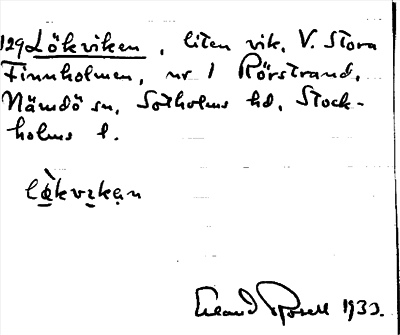 129 Lökviken, liten vik, V. Stora
Finnholmen, nr 1 Rörstrand,
Nämdö sn, Sotholms hd, Stock-
holms l.
lø̀kvikən
Erland Rosell 1933.